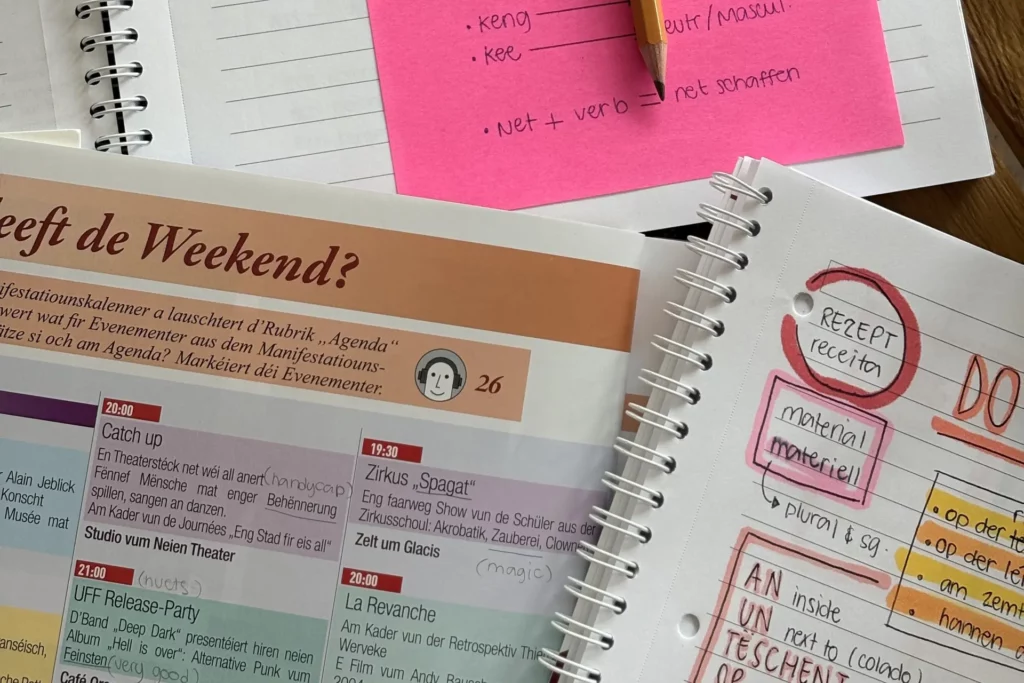 • keng
• kee
• Net + verb = net schaffen
de Weekend?
a lauschtert d'Rubrik „Agenda“
wat fir Evenementer aus dem Manifestatiouns-
si och am Agenda? Markéiert déi Evenementer.
26
Alain Jeblick
Konscht
Musée mat
20:00
Catch up
En Theaterstéck net wéi all anert (handycap)
Fënnef Mënsche mat enger Behënnerung
spillen, sangen an danzen.
Am Kader vun de Journées „Eng Stad fir eis all“
Studio vum Neien Theater
21:00
(nuets)
UFF Release-Party
D'Band „Deep Dark“ presentéiert hiren neien
Album „Hell is over“: Alternative Punk vum
Feinsten (very good)
19:30
Zirkus „Spagat“
Eng faarweg Show vun de Schüler aus der
Zirkusschoul: Akrobatik, Zauberei,
Zelt um Glacis
(magic)
20:00
La Revanche
Am Kader vun der Retrospektiv
Werveke
E Film vum Andy
REZEPT
receita
material
materiell
plural & sg.
DO
• op der
• op der
• am
• hannen
AN inside
UN next to (colado)
TESCHENT
OP